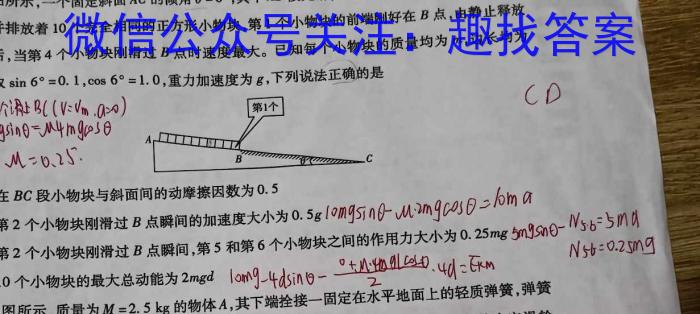 所示,一个固定斜面 AC 的倾角
并排放着 10 个完全相同的正方形小物块,第 1 个小物块的前端刚好在 B 点,由静止释放
后,当第 4 个小物块刚滑过 B 点时速度最大。已知每个小物块的质量均为
微信公众号关注:趣找答案
sin 6°=0.1,cos 6°=1.0,重力加速度为 g,下列说法正确的是
BC(V=Vm,a=0)
gsinθ=μ4mgcosθ
μ=0.25.
CD
第1个
A
B
θ
C
在 BC 段小物块与斜面间的动摩擦因数为 0.5
第 2 个小物块刚滑过 B 点瞬间的加速度大小为 0.5g 10mgsinθ-μ·2mgcosθ=10ma
第 2 个小物块刚滑过 B 点瞬间,第 5 和第 6 个小物块之间的作用力大小为 0.25mg 5mgsinθ-N56=5ma
N56=0.25mg
0 个小物块的最大总动能为 2mgd 10mg·4dsinθ-(0+μ·4mgcosθ)/2·4d=Ekm
图所示,质量为 M=2.5 kg 的物体 A,其下端拴接一固定在水平地面上的轻质弹簧,弹簧